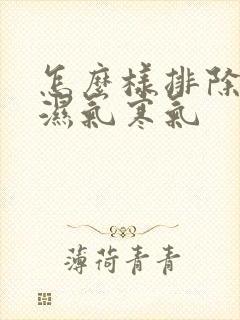 怎麼樣排除
濕氣寒氣
薄荷青青